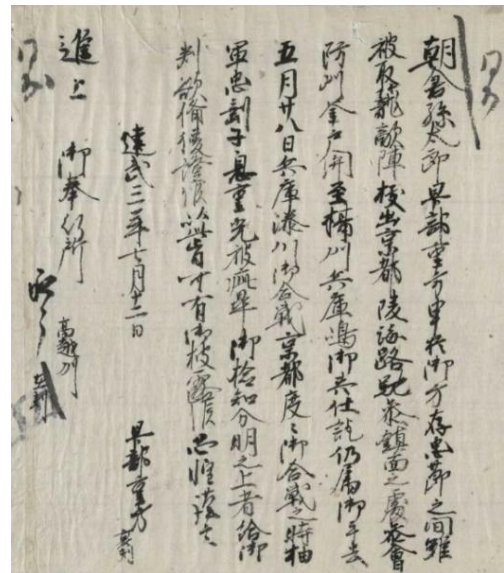 朝倉孫太郎早部重方申於御方存忠節之間雖
被取籠敵陣出京都凌海路馳参鎮西之處参會
防州釜戸関至摂州兵庫嶋御共仕訖仍属御手去
五月廿八日兵庫湊川御合戦京都度々御合戦之時抽
軍忠剰子息重光被疵畢御検知分明之上者給御
判欲備後證候以此旨可有御披露候恐惶謹言
建武三年七月十二日
早部重方 在判
進上 御奉行所
承了 高越州 在判